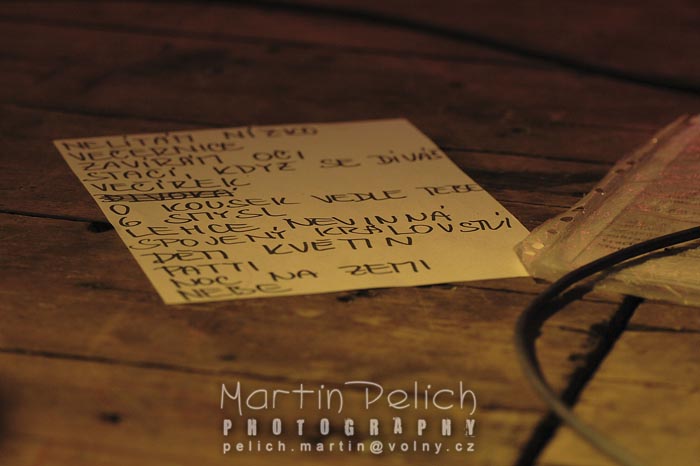 NELÍTÁM NÍZKO
VEČÍRNICE
ZAVÍRÁM OČI
STAČÍ, KDYŽ SE DÍVÁŠ
VEČÍREK
DIVOKÁ
O KOUSEK VEDLE TEBE
6. SMYSL
LEHCE NEVINNÁ
SPOJENÝ KRÁLOVSTVÍ
DĚTI KVĚTIN
PATTI
NOC NA ZEMI
NEBE
Martin Pelich
PHOTOGRAPHY
pelich.martin@volny.cz